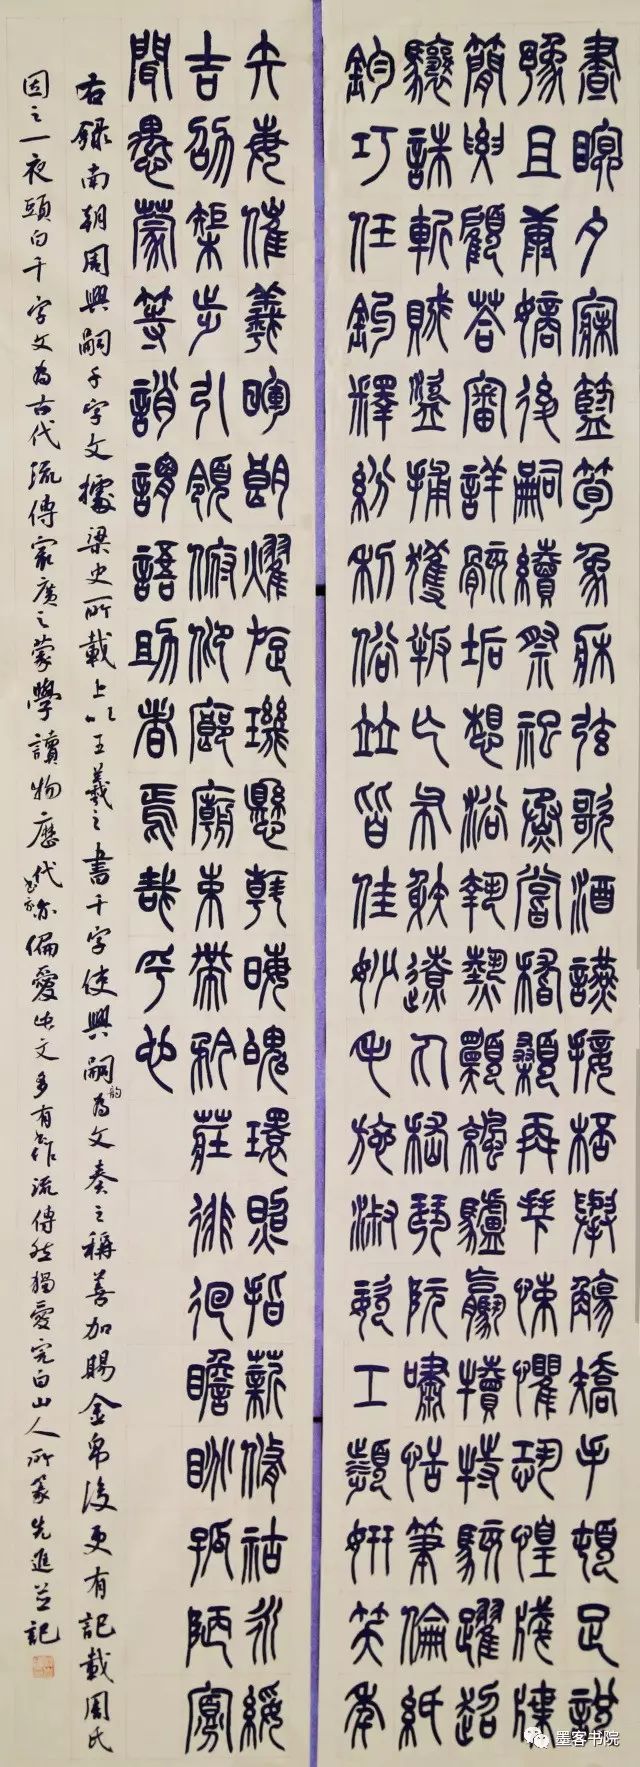 晝眠夕寐藍筍象床弦歌酒讌接杯舉觴矯手頓足悅
豫且康嫡後嗣續祭祀蒸嘗稽顙再拜悚懼恐惶牋牒
簡要顧荅審詳骸垢想浴執熱願涼驢騾犢特駭躍超
驤誅斬賊盜捕獲叛亡布射遼丸嵇琴阮嘯恬筆倫紙
鈞巧任釣釋紛利俗竝皆佳妙毛施淑姿工顰妍笑年
矢每催羲暉朗燿旋璣懸斡晦魄環照指薪脩祜永綏
吉劭矩步引領俯仰廊廟束帶矜莊徘徊瞻眺孤陋寡
聞愚蒙等誚謂語助者焉哉乎也
右錄南朝周興嗣千字文據梁史所載上以王羲之書千字使興嗣韵為文奏之稱善加賜金帛後更有記載周氏
因之一夜頭白千字文為古代流傳最廣之蒙學讀物歷代書家亦偏愛此文多有所作流傳然獨愛完白山人所篆先進并記
墨客书院